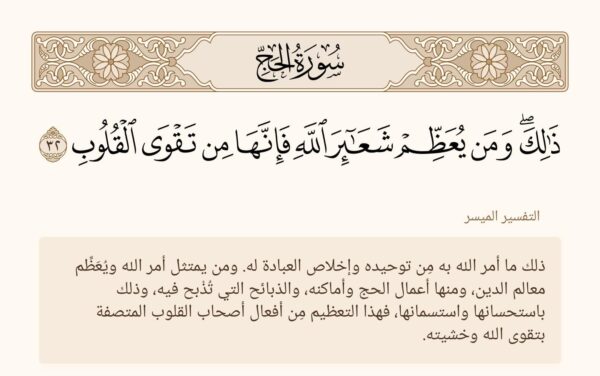 سُورَةُ الحَجِّ
ذَٰلِكَۖ وَمَن يُعَظِّمۡ شَعَـٰٓئِرَ ٱللَّهِ فَإِنَّهَا مِن تَقۡوَى ٱلۡقُلُوبِ ٣٢
التفسير الميسر
ذلك ما أمر الله به مِن توحيده وإخلاص العبادة له. ومن يمتثل أمر الله ويُعَظِّم
معالم الدين، ومنها أعمال الحج وأماكنه، والذبائح التي تُذْبح فيه، وذلك
باستحسانها واستسمانها، فهذا التعظيم مِن أفعال أصحاب القلوب المتصفة
بتقوى الله وخشيته.